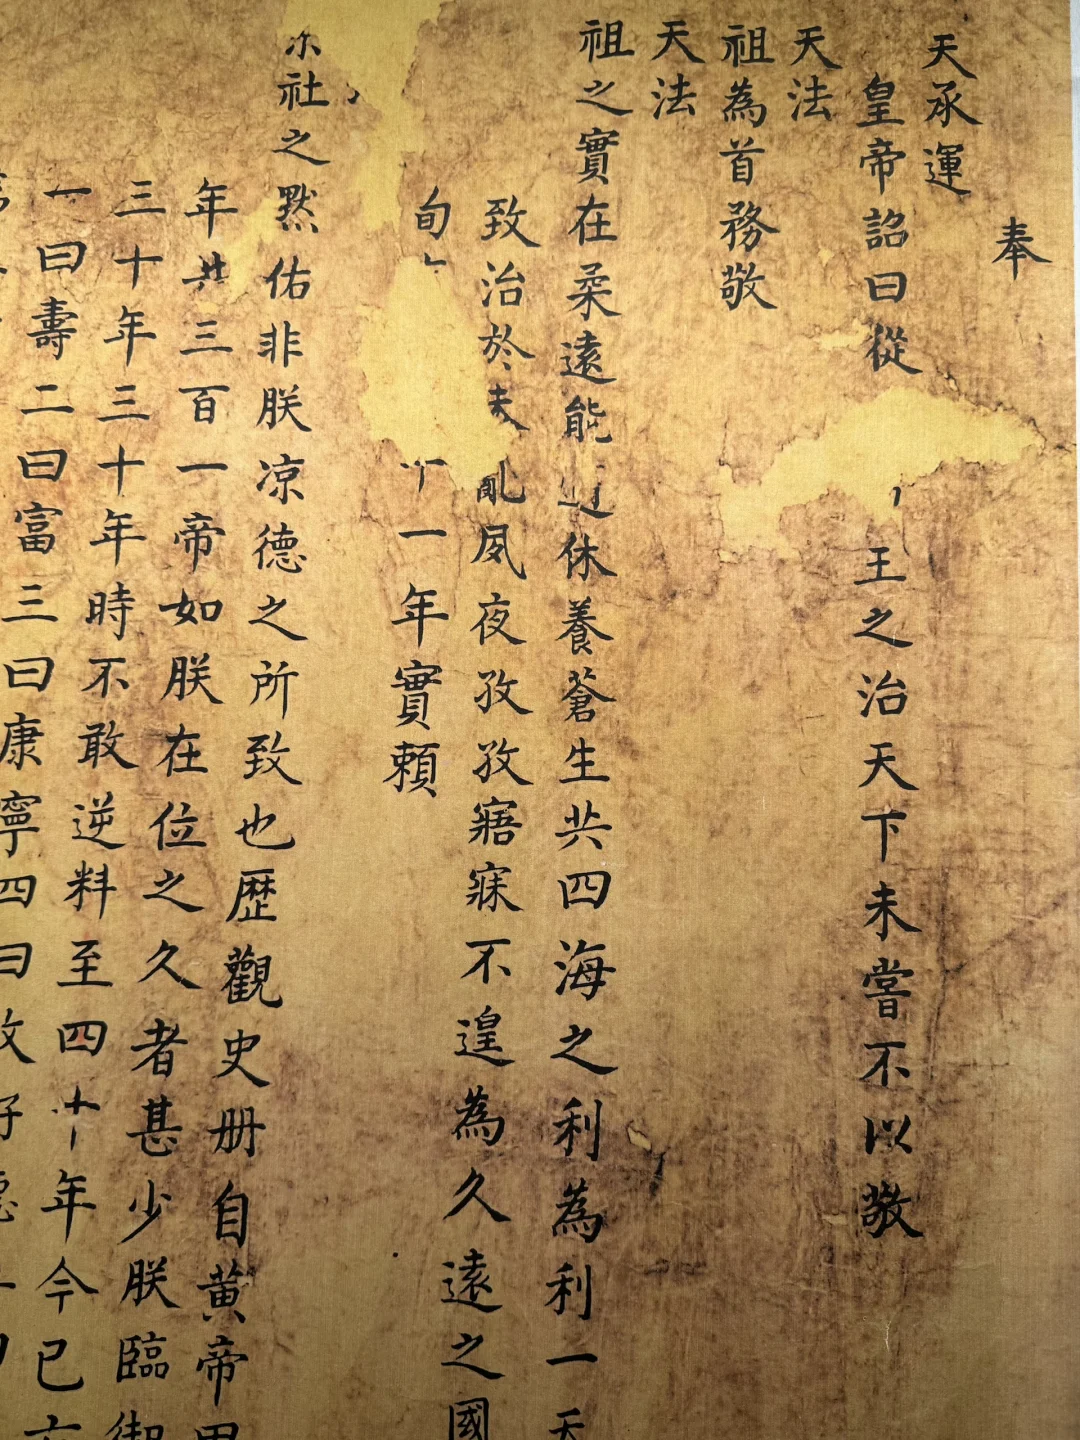 奉
天承運
皇帝詔曰從
王之治天下未嘗不以敬
天法
祖為首務敬
天法
祖之實在柔遠能迩休養蒼生共四海之利為利一天
致治於未亂夙夜孜孜寤寐不遑為久遠之國
旬
十一年實賴
宗社之黙佑非朕凉德之所致也歴觀史册自黄帝甲
年共三百一帝如朕在位之久者甚少朕臨御
三十年三十年時不敢逆料至四十年今已六
一曰壽二曰富三曰康寧四曰攸好德